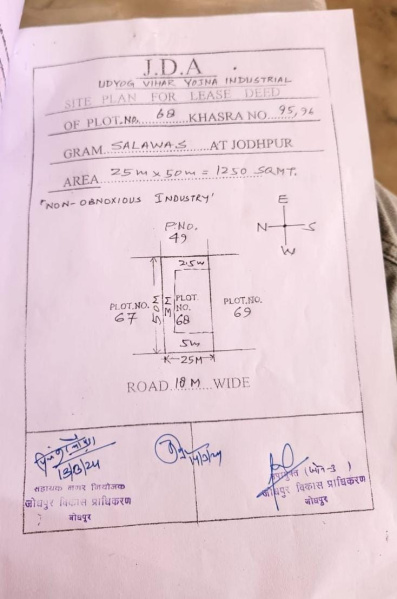 J.D.A
UDYOG VIHAR YOJNA INDUSTRIAL
SITE PLAN FOR LEASE DEED
OF PLOT.NO. 68 KHASRA NO. 95,96
GRAM. SALAWAS AT JODHPUR
AREA 25m x 50m = 1250 SQ.MT.
"NON-OBNOXIOUS INDUSTRY"
E
N S
W
P.NO.
49
2.5m
PLOT.NO. 67
50M
3M
PLOT NO. 68
PLOT.NO. 69
5m
25M
ROAD 18 M WIDE
13/3/24
सहायक नगर नियोजक
जोधपुर विकास प्राधिकरण
जोधपुर
उपायुक्त (जोन-3)
जोधपुर विकास प्राधिकरण
जोधपुर